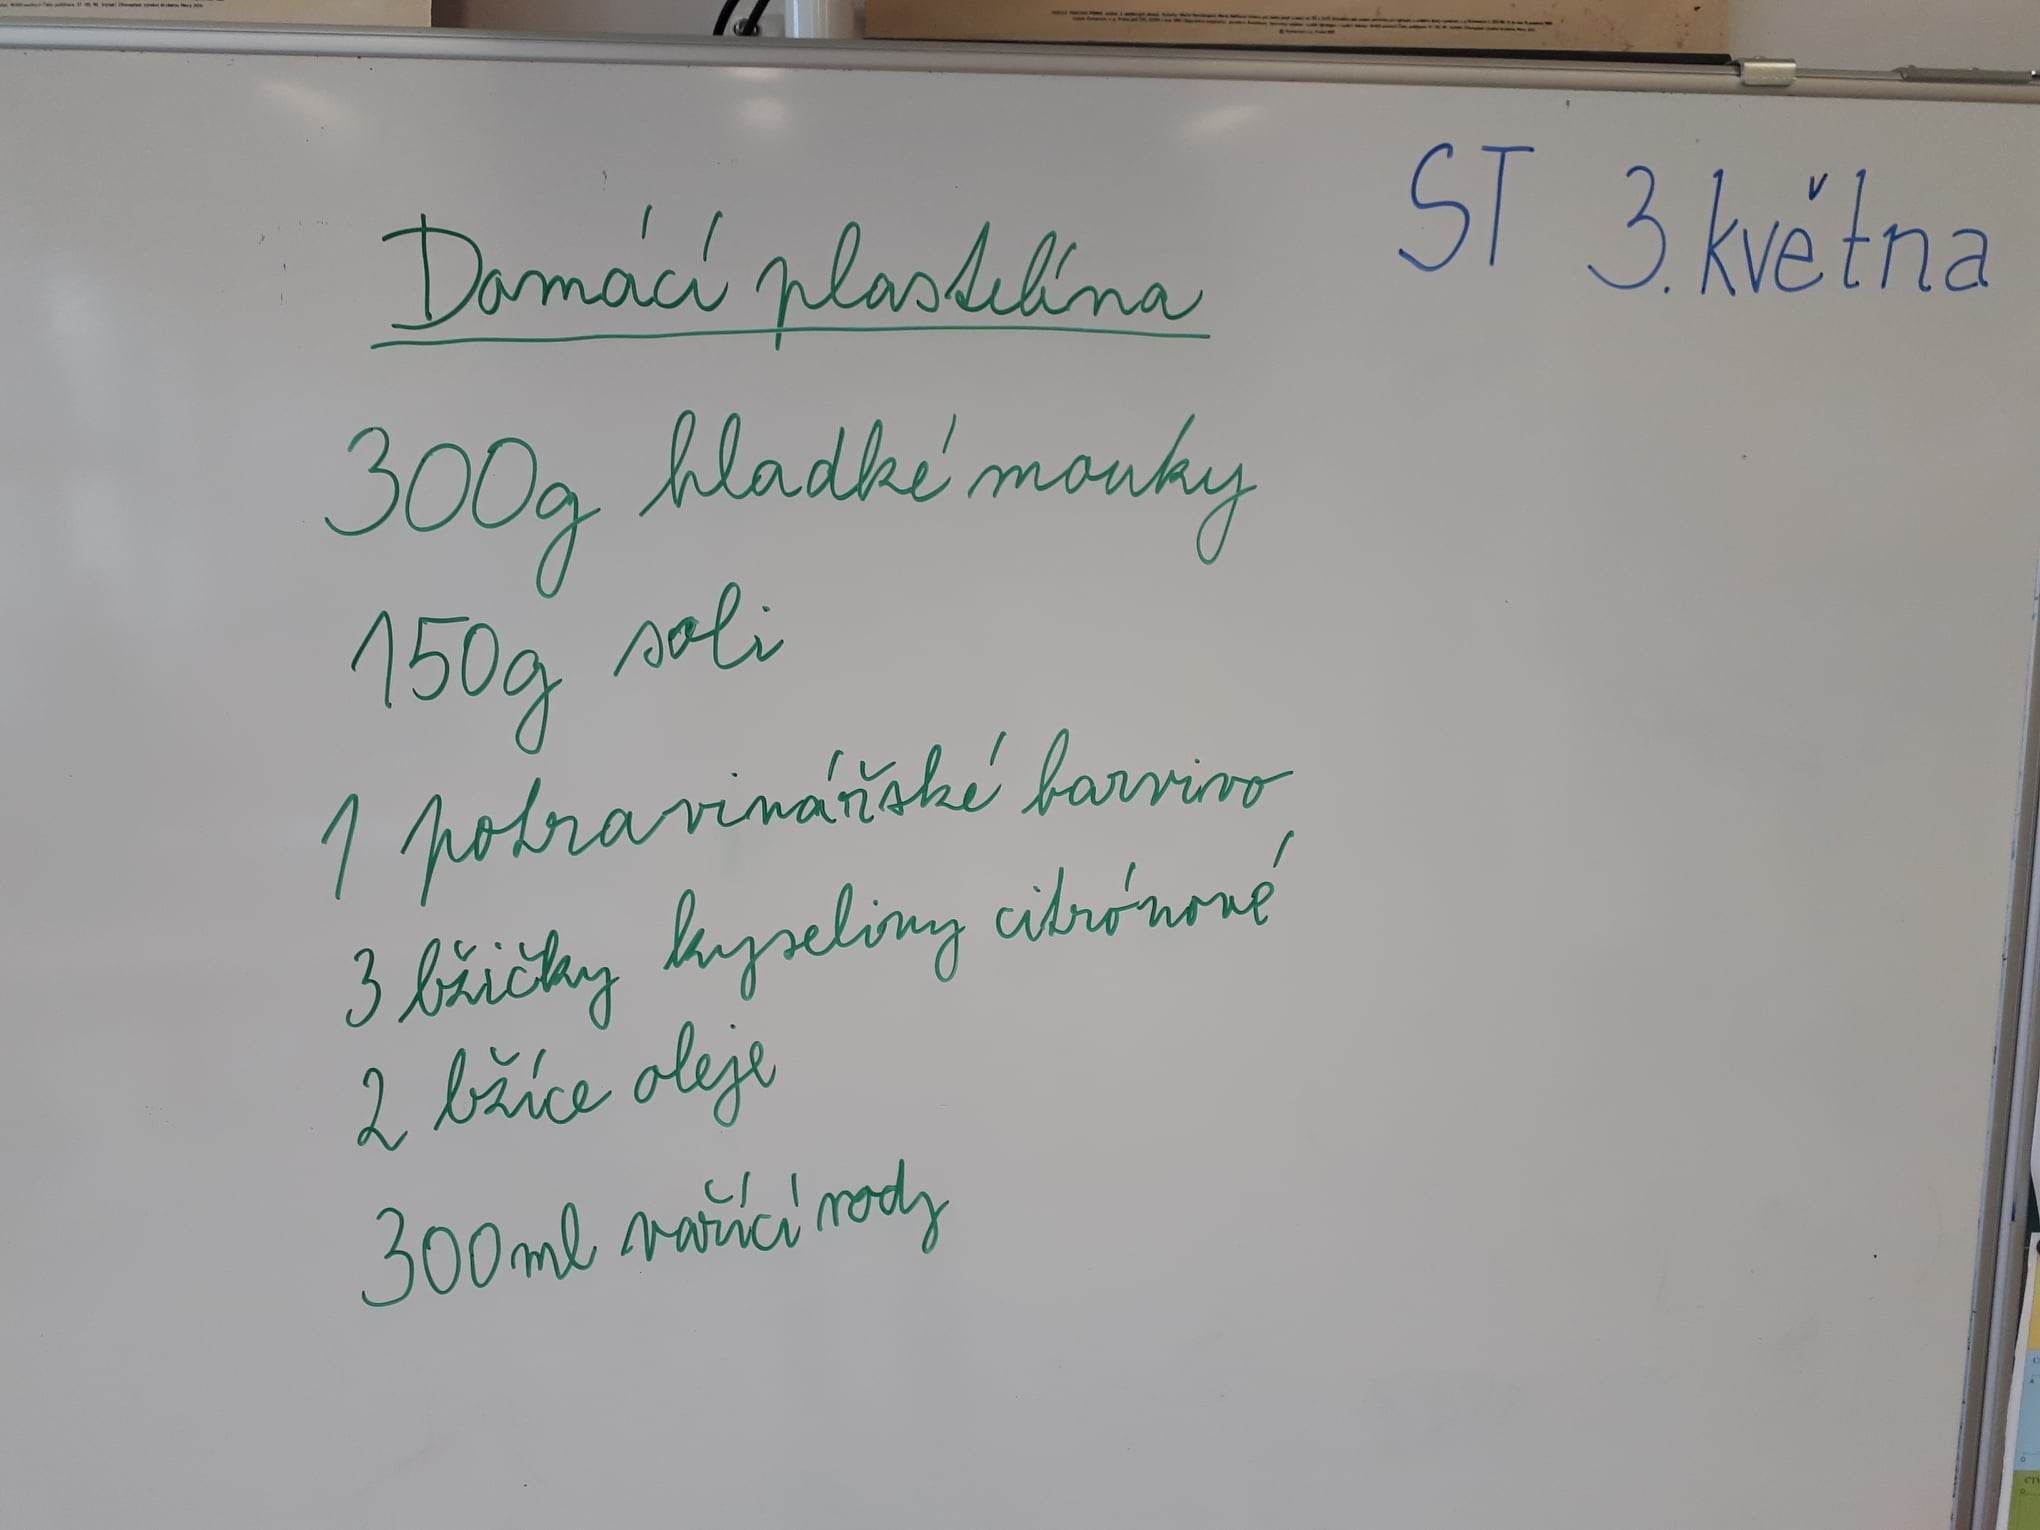 ST 3. května
Domácí plastelína
300g hladké mouky
150g soli
1 potravinářské barvivo
3 lžičky kyseliny citrónové
2 lžíce oleje
300ml vařící vody